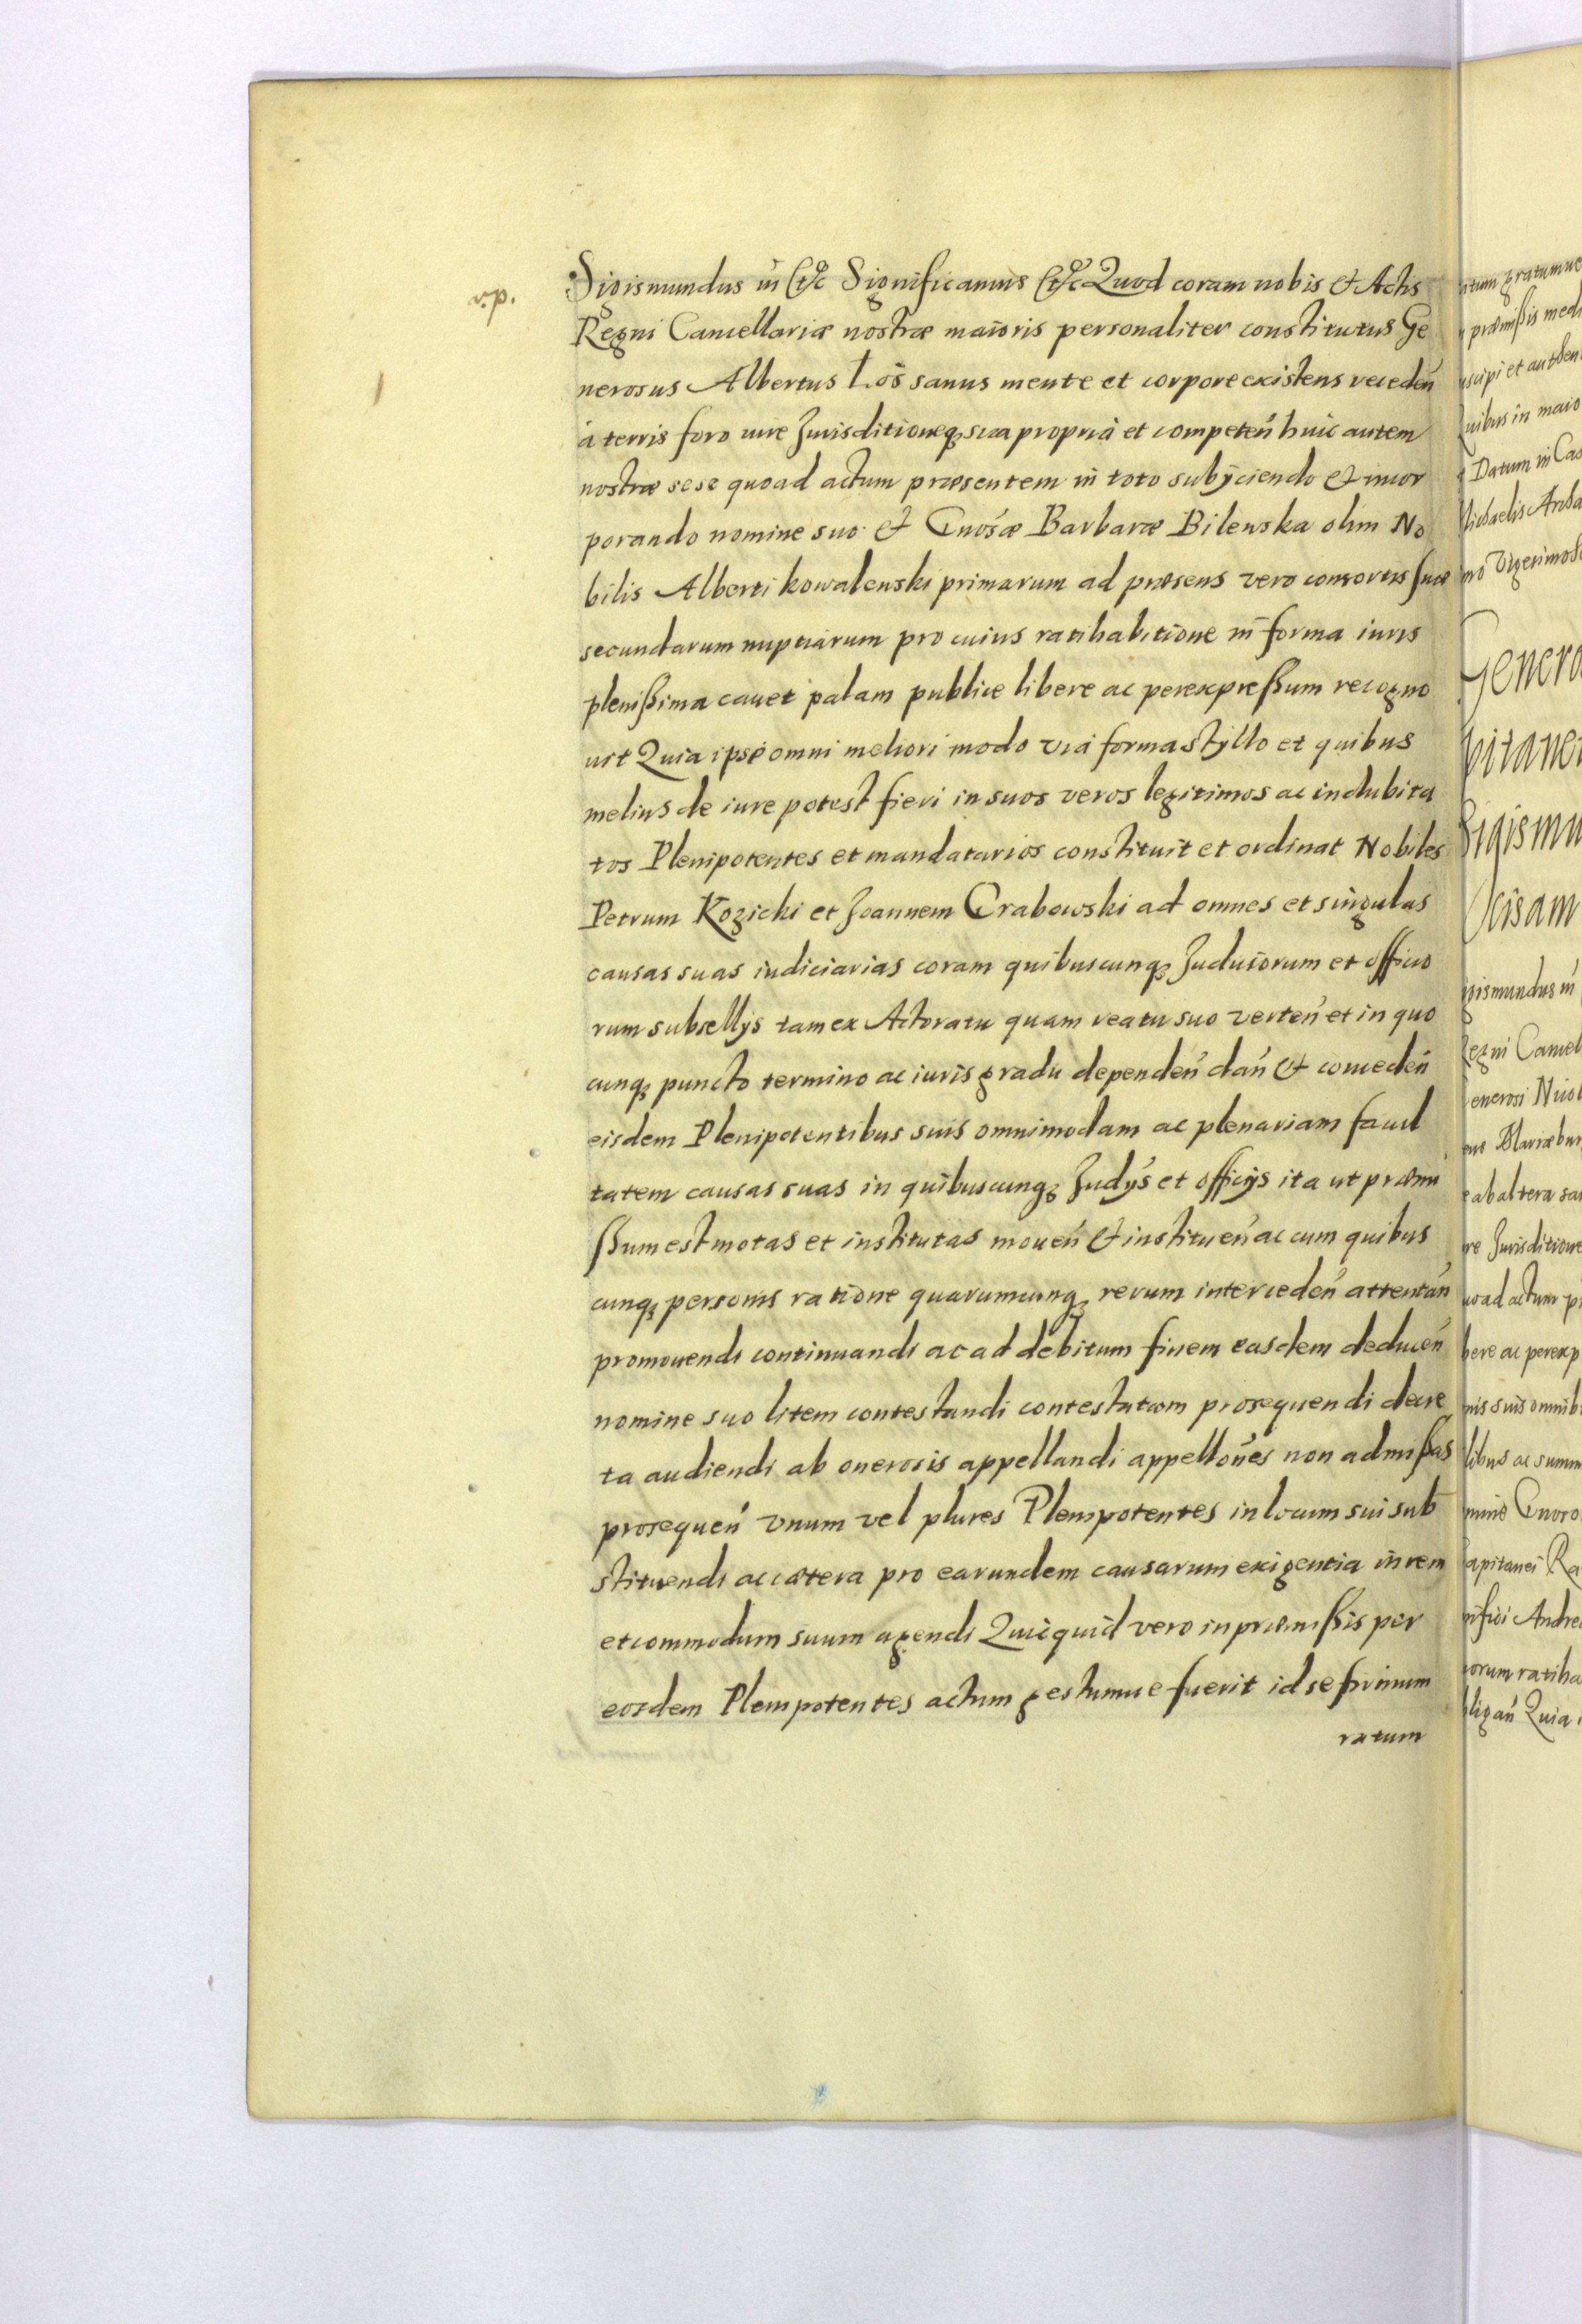 v. p.
Sigismundus iii &c Significamus &c Quod coram nobis & Actis
Regni Cancellariæ nostræ maioris personaliter constitutus Ge
nerosus Albertus Łoś sanus mente et corpore existens receden̄
à terris foro iure Jurisditioneq3 sua propria et competen̄ huic autem
nostræ sese quoad actum præsentem in toto subijciendo & incor
porando nomine suo & Gnosæ Barbaræ Bilewska olim No
bilis Alberti Kowalewski primarum ad præsens vero consortis suæ
secundarum nuptiarum pro cuius ratihabitione in forma iuris
plenißima cauet palam publice libere ac perexpreßum recogno
uit Quia ipse omni meliori modo via forma styllo et quibus
melius de iure potest fieri in suos veros legitimos ac indubita
tos Plenipotentes et mandatarios constituit et ordinat Nobiles
Petrum Kozicki et Joannem Grabowski ad omnes et singulas
causas suas iudiciarias coram quibuscunq3 Judiciorum et officio
rum subsellijs tam ex Actoratu quam reatu suo verten̄ et in quo
cunq3 puncto termino ac iuris gradu dependen̄ dan̄ & conceden̄
eisdem Plenipotentibus suis omnimodam ac plenariam facul
tatem causas suas in quibuscunq3 Judijs et officijs ita ut præmi
ßum est motas et institutas mouen̄ & instituen̄ ac cum quibus
cunq3 personis ratione quarumcunq3 rerum interceden̄ attentan̄
promouendi continuandi ac ad debitum finem easdem deducen̄
nomine suo litem contestandi contestatam prosequendi decre
ta audiendi ab onerosis appellandi appellōnes non admißas
prosequen̄ vnum vel plures Plenipotentes in locum sui sub
stituendi ac cætera pro earundem causarum exigentia in rem
et commodum suum agendi Quicquid vero in præmißis per
eosdem Plenipotentes actum gestumue fuerit id se firmum
ratum